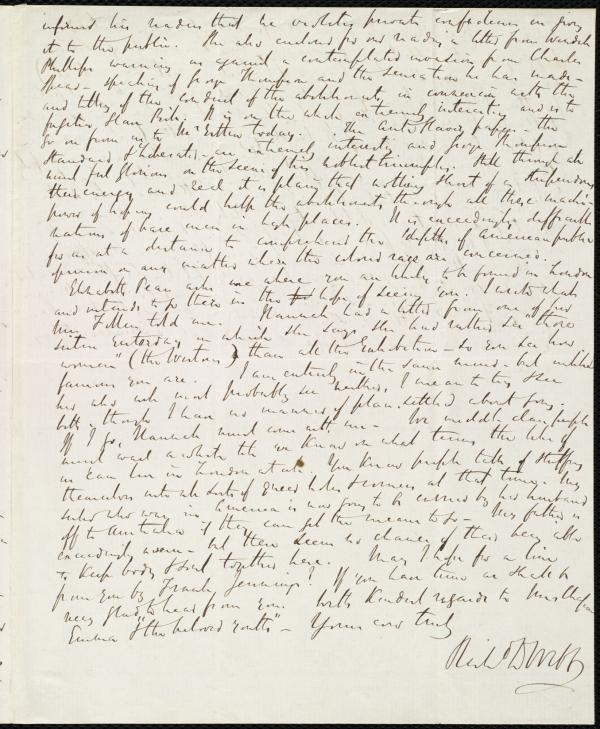 informs his readers that he violates private confidence in giving
it to the public. He also enclosed for our reading a letter from Wendell
Phillips warning us against a contemplated invasion from Charles
Spear - speaking of George Thompson and the sensation he has made -
and telling of the conduct of the abolitionists in connexion with the
fugitive Slave Bill. It is on the whole extremely interesting and is to
go on from us to Mr Estlin today. The Anti Slavery papers - the
Standard & Liberator - are extremely interesting and George Thompson
must feel glorious on the scene of his noblest triumphs. Still through all
their energy and zeal it is plain that nothing short of a stupendous
power of hoping could help the abolitionists through all these machi-
nations of base men in high places. It is exceedingly difficult
for us at a distance to comprehend the "depths" of American public
opinion on any matter where the colored race are concerned.
Elizabeth Pease asks me where you are likely to be found in London
and intends to go there in the hope of seeing you. I wish that
Miss Follen told me. Hannah had a letter from one of her
sisters yesterday in which she says she had rather see "those
women" (the Westons) than all the Exhibition - so you see how
famous you are. I am entirely in the same mind - but unless
her who will most probably see neither, I mean to try to see
both, though I have no manner of plan settled about going.
If I go, Hannah must come with me - We middle class people
must wait a while till we know on what terms the like of
us can live in London at all. You know people talk of stuffing
themselves into all sorts of queer holes & corners at that time. My
sister who was in America is now going to be carried by her husband
off to Australia if they can get the means to go - My father is
exceedingly averse - but there seems no chance of their being able
to keep body & soul together here. May I hope for a line
from you by Frank Jennings? If you have time we shall be
very glad to hear from you. With kindest regards to Mrs Chapman
Emma & "the beloved youths" - Yours ever truly
Richd D Webb